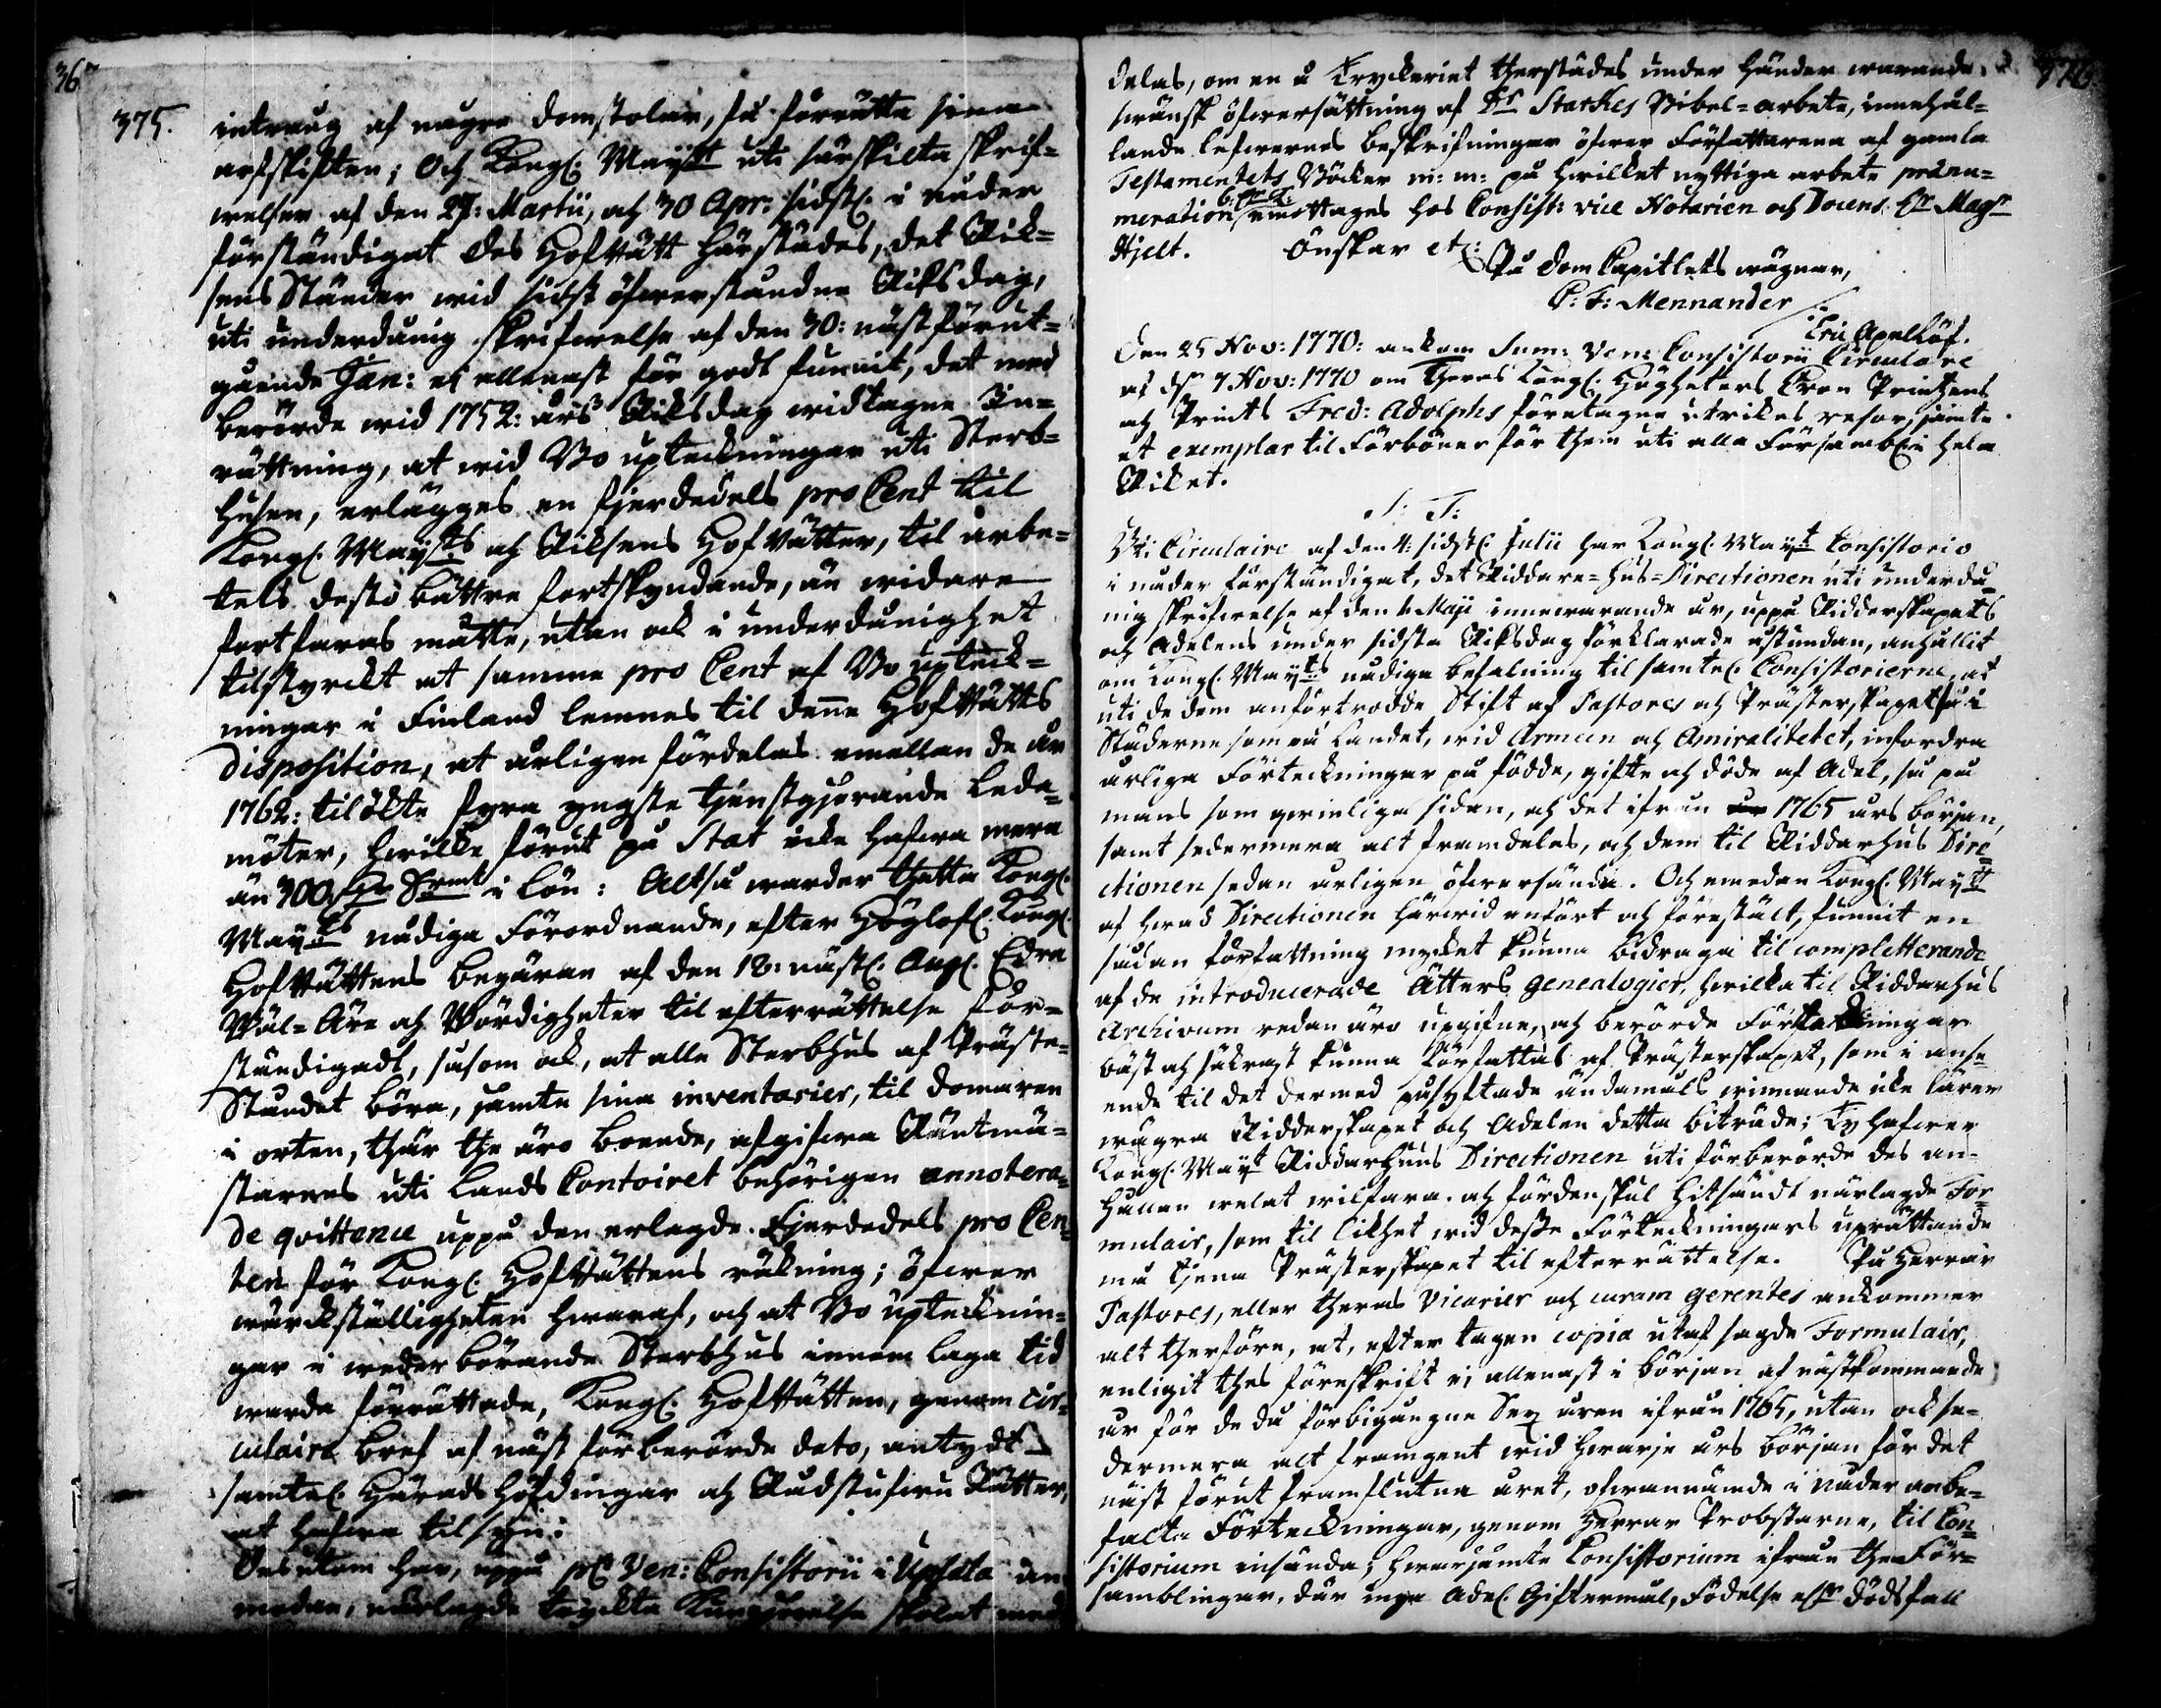 36
375.
intrång af någre domstolar, få förrätta sina
arfskiften; Och Kongl. Maÿtt uti särskilta skrif-
welser af den 27: Martii, och 30 Apr: sidstl. i nåder
förständigat des Hofrätt härstädes, det Rik-
sens Ständer wid sidst öfwerståndne Riksdag,
uti underdånig skrifwelse af den 30: näst förut-
gående Jan: ei allenast för godt funnit, det med
berörde wid 1752: års Riksdag widtagne In-
rättning, at wid Bo upteckningar uti Sterb-
husen, erlägges en fjerdedels pro Cent til
Kongl. Maÿtts och Riksens Hof Rätter, til arbe-
tets desto bättre fortskyndande, än widare
fortfaras måtte, utan ock i underdånighet
tilstyrckt at samma pro Cent af Bo upteck-
ningar i Finland lemnas til denne Hof Rätts
disposition, at årligen fördelas emellan de år
1762: tilökte fyra yngste tjenstgjörande Leda-
möter, hwilke förut på Stat icke hafwa mera
än 300 Dr Srmt i lön: Altså warder thetta Kongl.
Maÿtts nådiga Förordnande, efter Höglofl. Kongl.
Hof Rättens begäran af den 12: nästl. Aug. Edra
Wäl-Äre och Wördigheter til efterrättelse för-
ständigadt, såsom ock, at alle Sterbhus af Präste-
Ståndet böra, jämte sina inventarier, til domaren
i orten, thär the äro boende, afgifwa Räntmä-
starnes uti Lands Contoiret behörigen annotera-
de qvittence uppå den erlagde Fjerdedels pro Cen-
ten för Kongl. Hof Rättens räkning; öfwer
wärckställigheten hwaraf, och at Bo upteckning-
gar i wederbörande Sterbhus innom laga tid
warda förrättade, Kongl. Hof Rätten, genom cir-
culaire bref af näst förberörde dato, antydt
samtel. Härads Höfdingar och Rådstufwu Rätter,
at hafwa tilsyn:
Des utom har, uppå Ven: Consistorii i Upsala an-
modan, närlagde tryckte Kungörelse skolat med-
376
delas, om en å Tryckeriet therstädes under händer warande
swensk öfwersättning af Dr Starkes Bibel-arbete, innehål-
lande lefwernes beskrifningar öfwer Författarena af gamla
Testamentets Böcker m: m: på hwilket nyttiga arbete prænu-
meration emottages hos Consist: vice Notarien och Docens Hr Magr
Hjelt. Önskar etc:
På Dom Capitlets wägnar,
C: F: Mennander
Eric Apelköf.
Den 25 Nov: 1770: ankom Sum: Ven: Consistorii Circulaire
af ds 7 Nov: 1770 om Theras Kongl. Högheters Cron Printzens
och Prints Fred: Adolphs företagne utrikes resor, jämte
et exemplar til Förböner för them uti alla Församl. i hela
Riket.
S. T:
Uti Circulaire af den 4: sidstl. Julii har Kongl. Maytt Consistorio
i nåder förständigat, det Riddare-hus-Directionen uti underdå-
nig skrifwelse af den 1. Maji innewarande år, uppå Ridderskapets
och Adelens under sidsta Riksdag förklarade åstundan, anhållit
om Kongl. Maytts nådiga befalning til samtel. Consistorierne, at
uti de dem anförtrodde Stift af Pastores och Prästerskapet så i
Städerne som på Landet, wid Armeen och Amiralitetet, infordra
årliga Förteckningar på födde, gifte och döde af Adel, så på
mans som qwinliga sidan, och det ifrån 1765 års början,
samt sedermera alt framdeles, och dem til Riddarhus Dire-
ctionen sedan årligen öfwersända. Och emedan Kongl. Maytt
af hwad Directionen härwid anfört och förestält, funnit en
sådan författning mycket kunna bidraga til completterande
af de introducerade Ätters genealogier, hwilka til Riddarhus
Archivum redan äro upgifne, och berörde Förteckningar
bäst och säkrast kunna författas af Prästerskapet, som i anse-
ende til det dermed åsyftade ändamåls winnande icke lärer
wägra Ridderskapet och Adelen detta biträde; Ty hafwer
Kongl. Mayt Riddarhuus Directionen uti förberörde des an-
hållan welat wilfara. och fördenskul hitsändt närlagde For-
mulair, som til likhet wid desse Förteckningars uprättande
må tjena Prästerskapet til efterrättelse. På Herrar
Pastores, eller theras Vicarier och curam gerentes ankommer
alt therföre, at, efter tagen copia utaf sagde Formulair,
enligit thes föreskrift ei allenast i början af nästkommande
år för de då förbigångne Sex åren ifrån 1765, utan ock se-
dermera alt framgent wid hwarje års början för det
näst förut framflutna året, ofwannämde i nåder anbe-
falte Förteckningar, genom Herrar Probstarne, til Con-
sistorium insända; hwarjämte Consistorium ifrån then För-
samlingar, där inga Adel. Giftermål, Födelse eller dödsfall